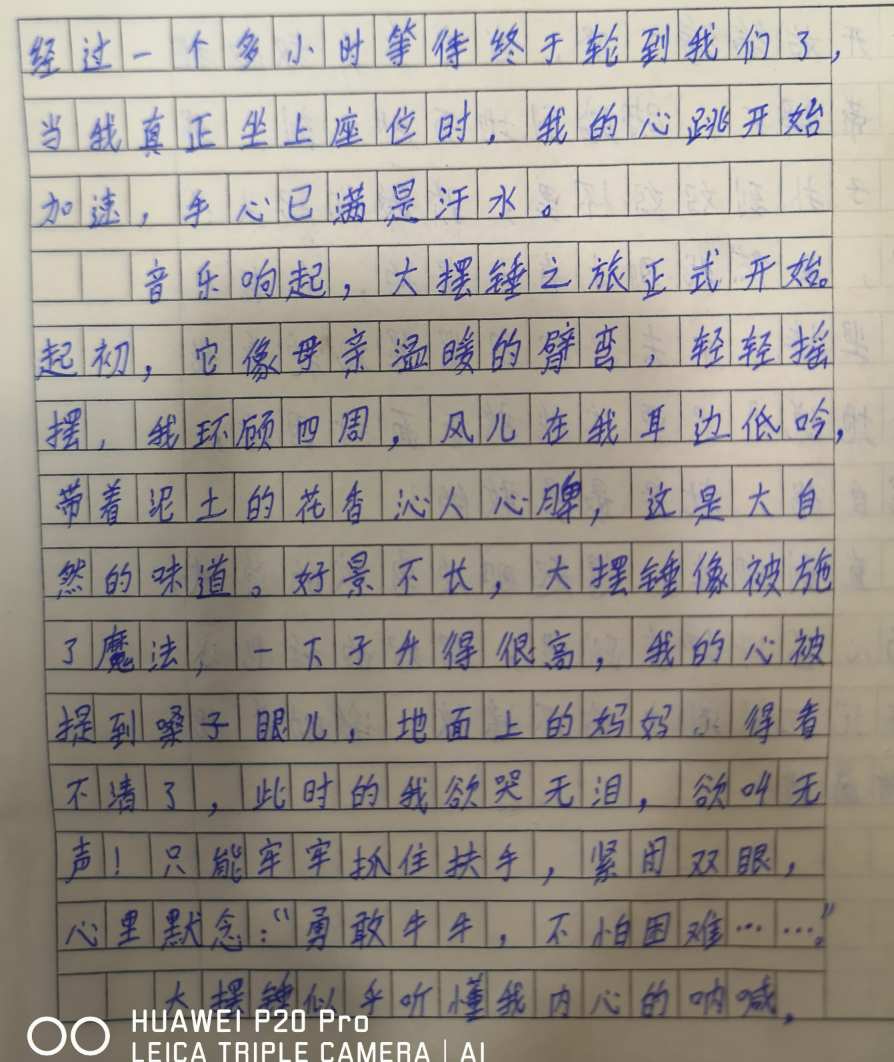 经过一个多小时等待终于轮到我们了，
当我真正坐上座位时，我的心跳开始
加速，手心已满是汗水。
音乐响起，大摆锤之旅正式开始。
起初，它像母亲温暖的臂弯，轻轻摇
摆，我环顾四周，风儿在我耳边低吟，
带着泥土的花香沁人心脾，这是大自
然的味道。好景不长，大摆锤像被施
了魔法，一下子升得很高，我的心被
提到嗓子眼儿，地面上的妈妈 得看
不清了，此时的我欲哭无泪，欲叫无
声！只能牢牢抓住扶手，紧闭双眼，
心里默念：“勇敢牛牛，不怕困难……。”
大摆锤似乎听懂我内心的呐喊，
HUAWEI P20 Pro
LEICA TRIPLE CAMERA | AI